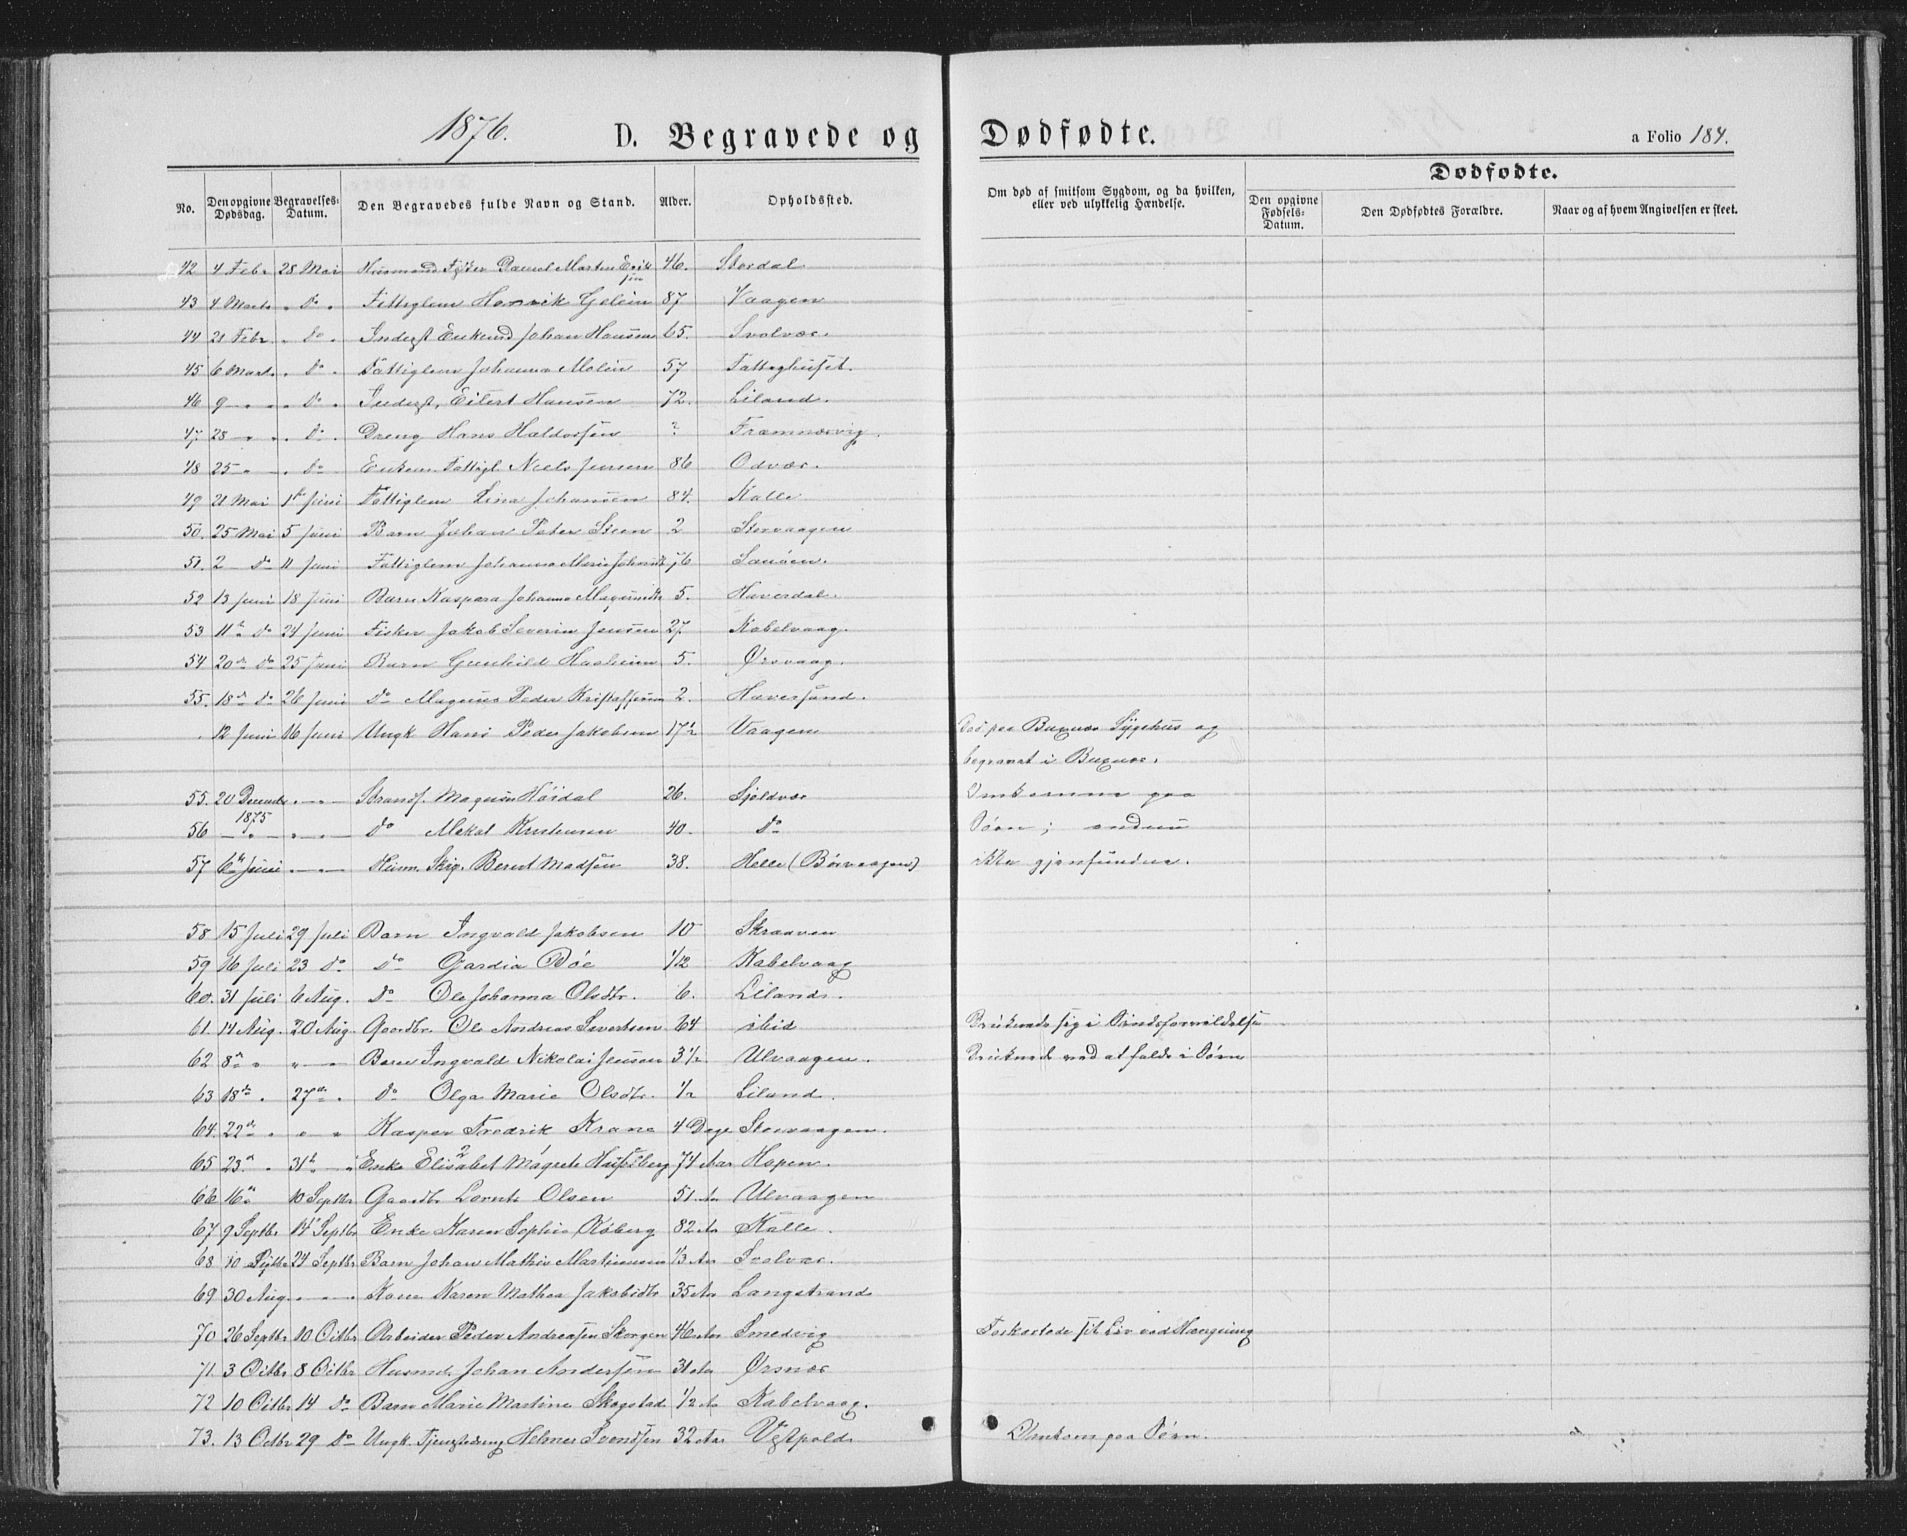 1876.
D. Begravede og Dødfødte.
a Folio 184.
Dødfødte.
No.
Den opgivne Dødsdag.
Begravelses-Datum.
Den Begravedes fulde Navn og Stand.
Alder.
Opholdssted.
Om død af smitsom Sygdom, og da hvilken, eller ved ulykkelig Hændelse.
Den opgivne Fødsels-Datum.
Den Dødfødtes Forældre.
Naar og af hvem Angivelsen er skeet.
42 4 Febr 28 Mai Husmand Fisker Daniel Martin Eriksen 46. Stordal
43 4 Marts " do " Fattiglem Henrik 87 Vaagen
44 21 Febr. " do " Inderst Enkemd Johan Hansen 65. Svolvær.
45 6 Marts " do " Fattiglem Johanna Molin 57 Fattighuset.
46 9 " " do " Inderst, Eilert Hansen 72. Liland.
47. 28 " " do " Dreng Hans Haldorsen ? Framnesvig.
48 25 " " do Enkem. Fattigl. Niels Jensen 86 Odvær.
49 21 Mai 1ste Juni Fattiglem Lina Johansen 84. Kalle
50. 25 Mai 5 Juni Barn Johan Peter Steen 2 Storvaagen
51. 2 do 11 Juni Fattiglem Johanna Marie 76
52 13 Juni 18 Juni Barn Kaspara Johanna Magnusdtr 5. Haverdal.
53 11te do 24 Juni Fisker Jakob Severin Jensen 27. Kabelvaag.
54 20de do 25 Juni Barn Gunhild 5. Ørsvaag.
55. 18de do 26 Juni do Magnus Peder Kristoffersen 2. Haversund.
12 Juni 16 Juni Ungk Hans Peder Jakobsen 17½ Vaagen Død paa Buxnæs Sygehus og
begravet i Buxnæs.
55. 20 Decembr " " Strands. Magnus Høidal 26. Sjoldvær Omkomne paa
1875
56 " " " do Mekal Kristensen 40. do Søen; endnu
57 6te Juni " " Bernt Madsen 38. Helle (Børvaagen) ikke gjenfundne.
58 15 Juli 29 Juli Barn Ingvald Jakobsen 10 Skraaven
59 16 Juli 23 do do Gardia Bøe 1/12 Kabelvaag
60. 31 Juli 6 Aug. do Ole Johanna Olsdtr. 6. Liland.
61. 14 Aug. 20 Aug. Gaardbr. Ole Andreas Sivertsen 64 ibid Druknede sig i Sindsforvildelse
62 8de " " " Barn Ingvald Nikolai Jensen 3½ Ulvaagen. Druknede ved at falde i Søen
63 18de " 27de " do Olga Marie Olsdtr. ½ Liland.
64. 22de " " " Kasper Fredrik Krane 4 Dage Storvaagen.
65 23de " 31te " Enke Elisabet Magrete 74 Aar Hopen.
66 16de 10 Septbr Gaardbr Lornts Olsen 51 Aar Ulvaagen
67 9 Septbr 14 Septbr Enke Karen Sophie 82 Aar Kalle.
68 10 Septbr 24 Septbr Barn Johan Mathis Martinussen 1/3 Aar Svolvær.
69 30 Aug. " " Kone Karen Mathea Jakobsdtr 35 Aar Langstrand
70 26 Septbr 10 Octbr Arbeider Peder Andreasen 46 Aar Smedvig Forkortede sit Liv ved Hængning
71. 3 Octbr 8 Octbr Husmd. Johan Andersen 31 Aar Ørsnæs
72 10 Octbr 14 do Barn Marie Martine Skogstad ½ Aar Kabelvaag.
73. 13 Octbr 29 do Ungk. Tjenestedreng Helmer Svendsen 32 Aar Omkom paa Søen.